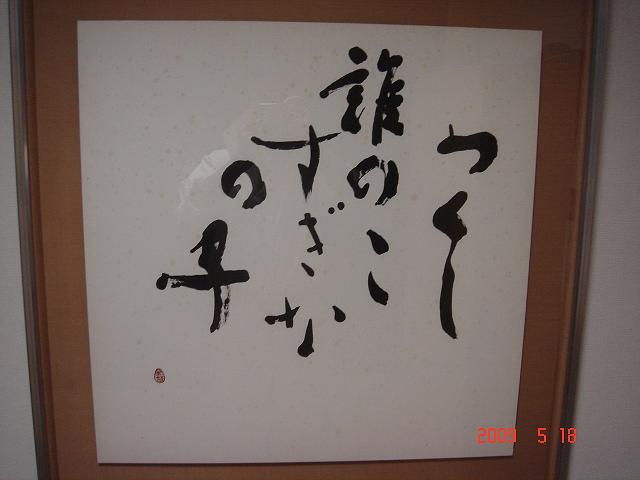 つくし
誰のこ
すぎな
の子
2009 5 18